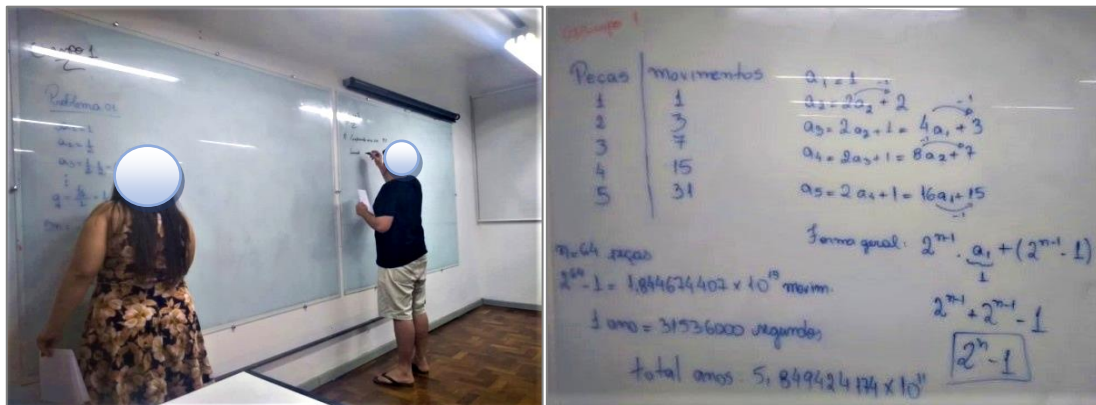 Grupo 1
Problema 01
a₂ = 1/2
Grupo 1
Peças | movimentos
1 | 1
2 | 3
3 | 7
4 | 15
5 | 31
a₁ = 1
a₂ = 2a₂ + 2
a₃ = 2a₂ + 1 = 4a₁ + 3
a₄ = 2a₃ + 1 = 8a₂ + 7
a₅ = 2a₄ + 1 = 16a₁ + 15
-1
-1
-1
-1
Forma geral: 2ⁿ⁻¹ . a₁ + (2ⁿ⁻¹ - 1)
1
2ⁿ⁻¹ + 2ⁿ⁻¹ - 1
2ⁿ - 1
n=64 peças
2⁶⁴ - 1 = 1,844674407 x 10¹⁹ movim.
1 ano = 31536000 segundos
total anos: 5,849424174 x 10¹¹